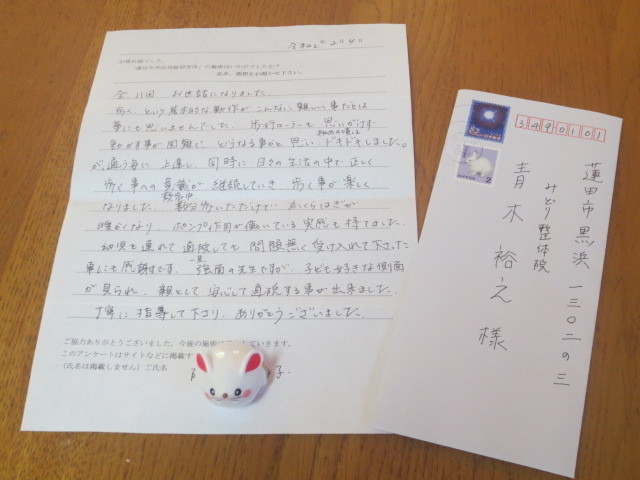 令和2年2月4日
お疲れ様でした。
の施術はいかがでしたか？
是非、感想をお聞かせ下さい。
全11回 お世話になりました。
歩く、という基本的な動作が こんなに難しい事だとは
夢にも思いませんでした。歩行ローラーも 思いがけず
初めの頃は
動かす事が困難で どうなる事かと思い ドキドキしました。
が、通う毎に 上達し、同時に 日々の生活の中で正しく
歩く事への意識が 継続していき 歩く事が楽しく
なりました。数分歩いただけで ふくらはぎが
暖かくなり、ポンプ作用が働いている 実感も 持てました。
幼児を連れて通院しても 問題無く 受け入れて下さった
事にも感謝です。一見 強面の先生ですが、子ども好きな側面
が見られ、親として 安心して通院する事が出来ました。
丁寧に 指導して下さり、ありがとうございました。
ご協力ありがとうございました。今後の施術に していきます。
このアンケートはサイトなどに掲載す
（氏名は掲載しません）ご氏名
子
82
2
3490101
蓮田市黒浜一三〇二の三
みどり整体院
青木裕之様